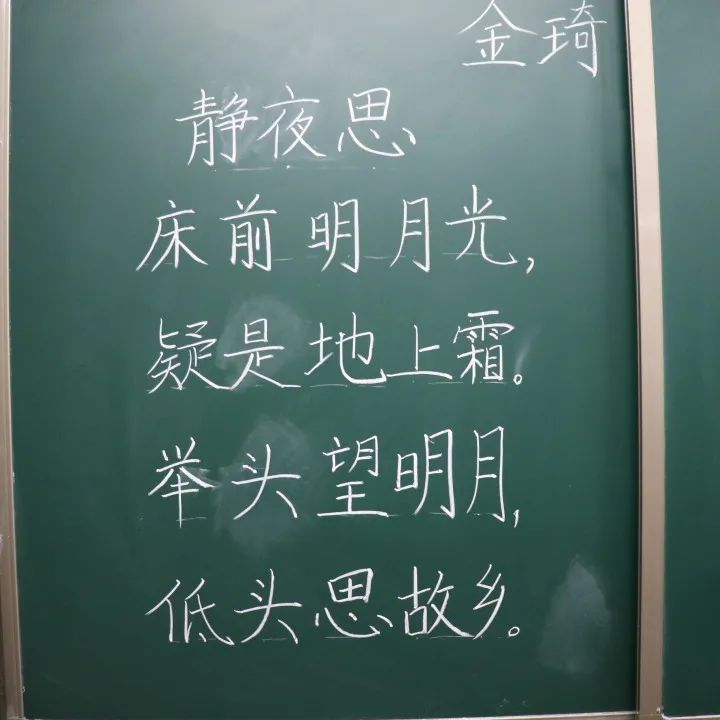 金琦
静夜思
床前明月光,
疑是地上霜。
举头望明月,
低头思故乡。